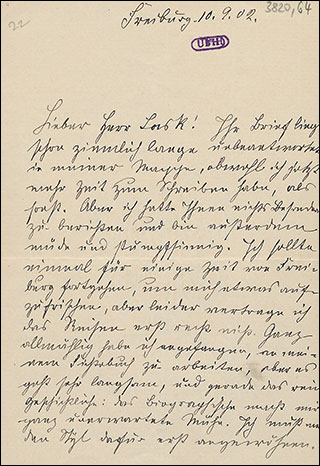 22
3820,64
Freiburg. 10. 9. 02.
UBHD
Lieber Herr Lask! Ihr Brief liegt
schon ziemlich lange unbeantwortet
in meiner Mappe, obwohl ich jetzt
mehr Zeit zum Schreiben habe, als
sonst. Aber ich hatte Ihnen nichts Besonderes
zu berichten und bin außerdem
müde und stumpfsinnig. Ich sollte
einmal für einige Zeit von Frei-
burg fortgehen, um mich etwas auf-
zufrischen, aber leider vertrage ich
das Reisen erst recht nicht. Ganz
allmählig habe ich angefangen, an mei-
nem Fichtebuch zu arbeiten, aber es
geht sehr langsam, und gerade das rein
Geschichtliche: das Biographische macht mir
ganz unerwartete Mühe. Ich muß mir
den Styl dafür erst angewöhnen.